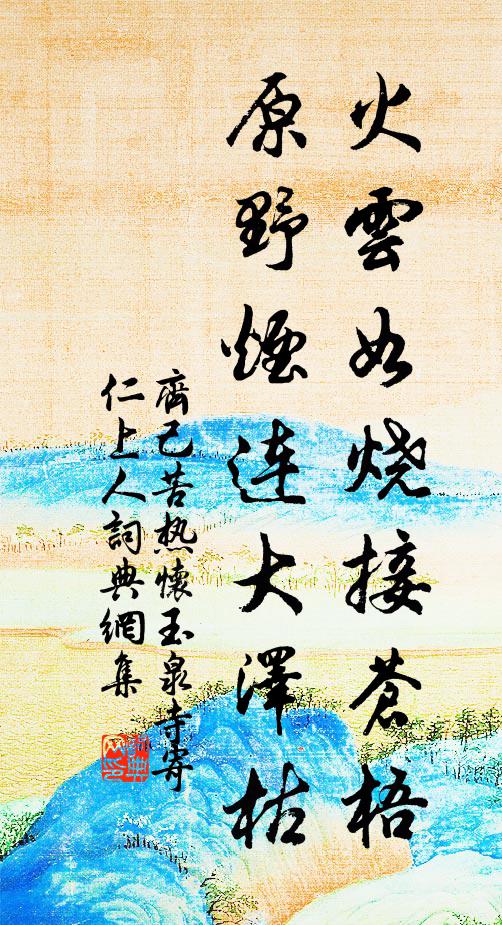 火雲如烧接蒼梧
原野煙連大澤枯
齊己苦热懷玉泉寺寄
仁上人詞典網集